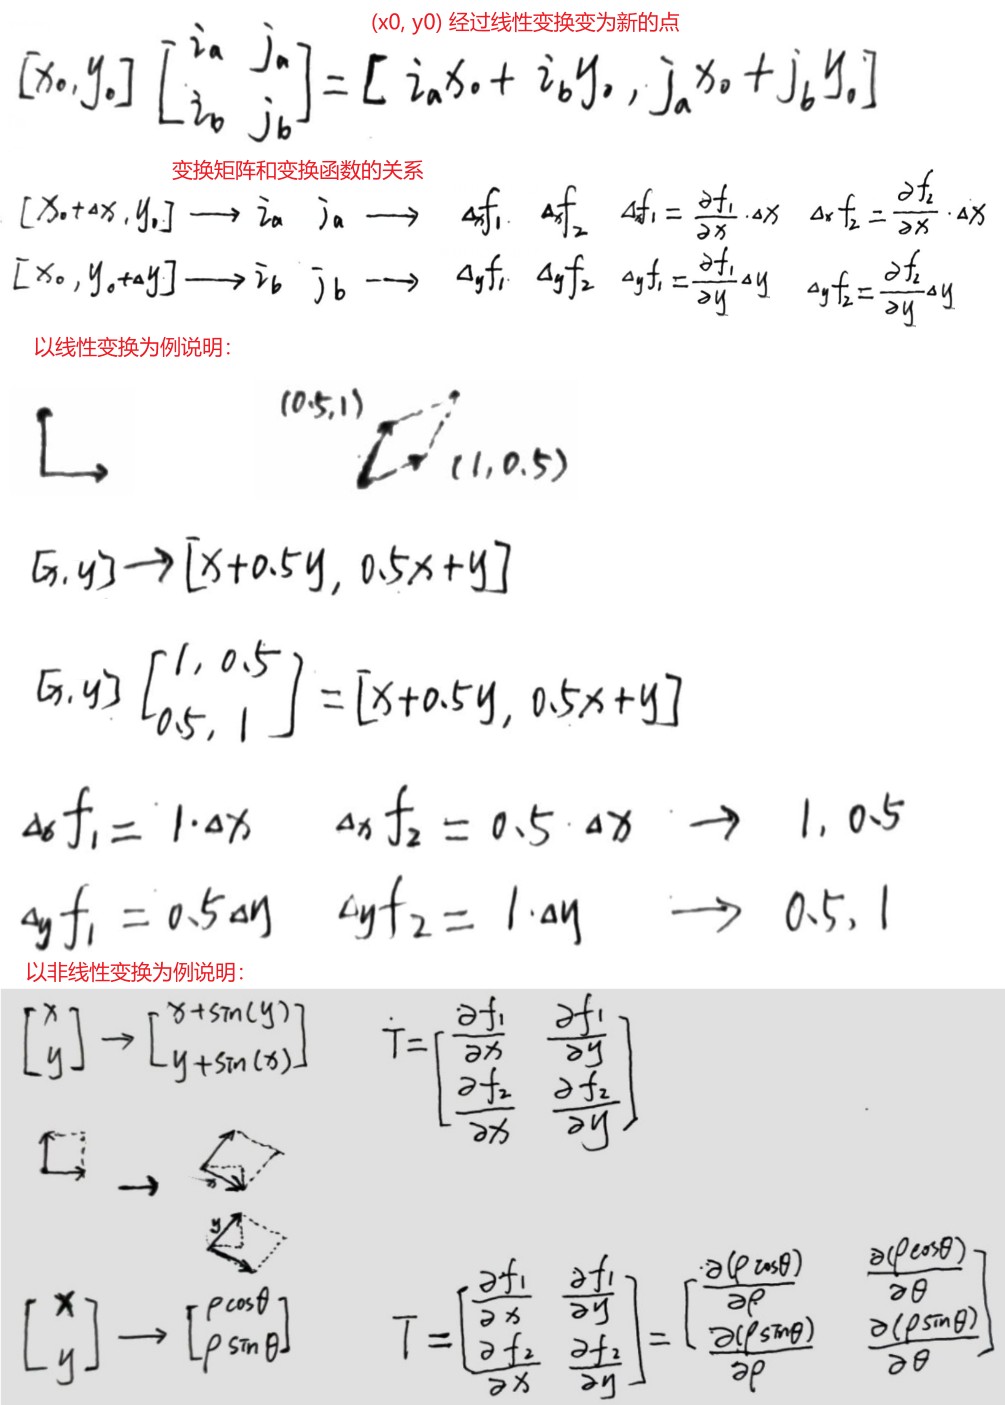 (x0, y0) 经过线性变换变为新的点
[x₀, y₀] [iₐ jₐ; i_b j_b] = [iₐx₀ + i_by₀, jₐx₀ + j_by₀]
变换矩阵和变换函数的关系
[x₀+Δx, y₀] → iₐ jₐ → Δₓf₁ Δₓf₂ Δₓf₁ = ∂f₁/∂x · Δx Δₓf₂ = ∂f₂/∂x · Δx
[x₀, y₀+Δy] → i_b j_b → Δyf₁ Δyf₂ Δyf₁ = ∂f₁/∂y Δy Δyf₂ = ∂f₂/∂y Δy
以线性变换为例说明:
(0.5, 1)
(1, 0.5)
[x, y] → [x+0.5y, 0.5x+y]
[x, y] [1, 0.5; 0.5, 1] = [x+0.5y, 0.5x+y]
Δₓf₁ = 1·Δx Δₓf₂ = 0.5·Δx → 1, 0.5
Δyf₁ = 0.5Δy Δyf₂ = 1·Δy → 0.5, 1
以非线性变换为例说明:
[x; y] → [x+sin(y); y+sin(x)] T = [∂f₁/∂x ∂f₁/∂y; ∂f₂/∂x ∂f₂/∂y]
x
y
[x; y] → [ρcosθ; ρsinθ] T = [∂f₁/∂x ∂f₁/∂y; ∂f₂/∂x ∂f₂/∂y] = [∂(ρcosθ)/∂ρ ∂(ρcosθ)/∂θ; ∂(ρsinθ)/∂ρ ∂(ρsinθ)/∂θ]